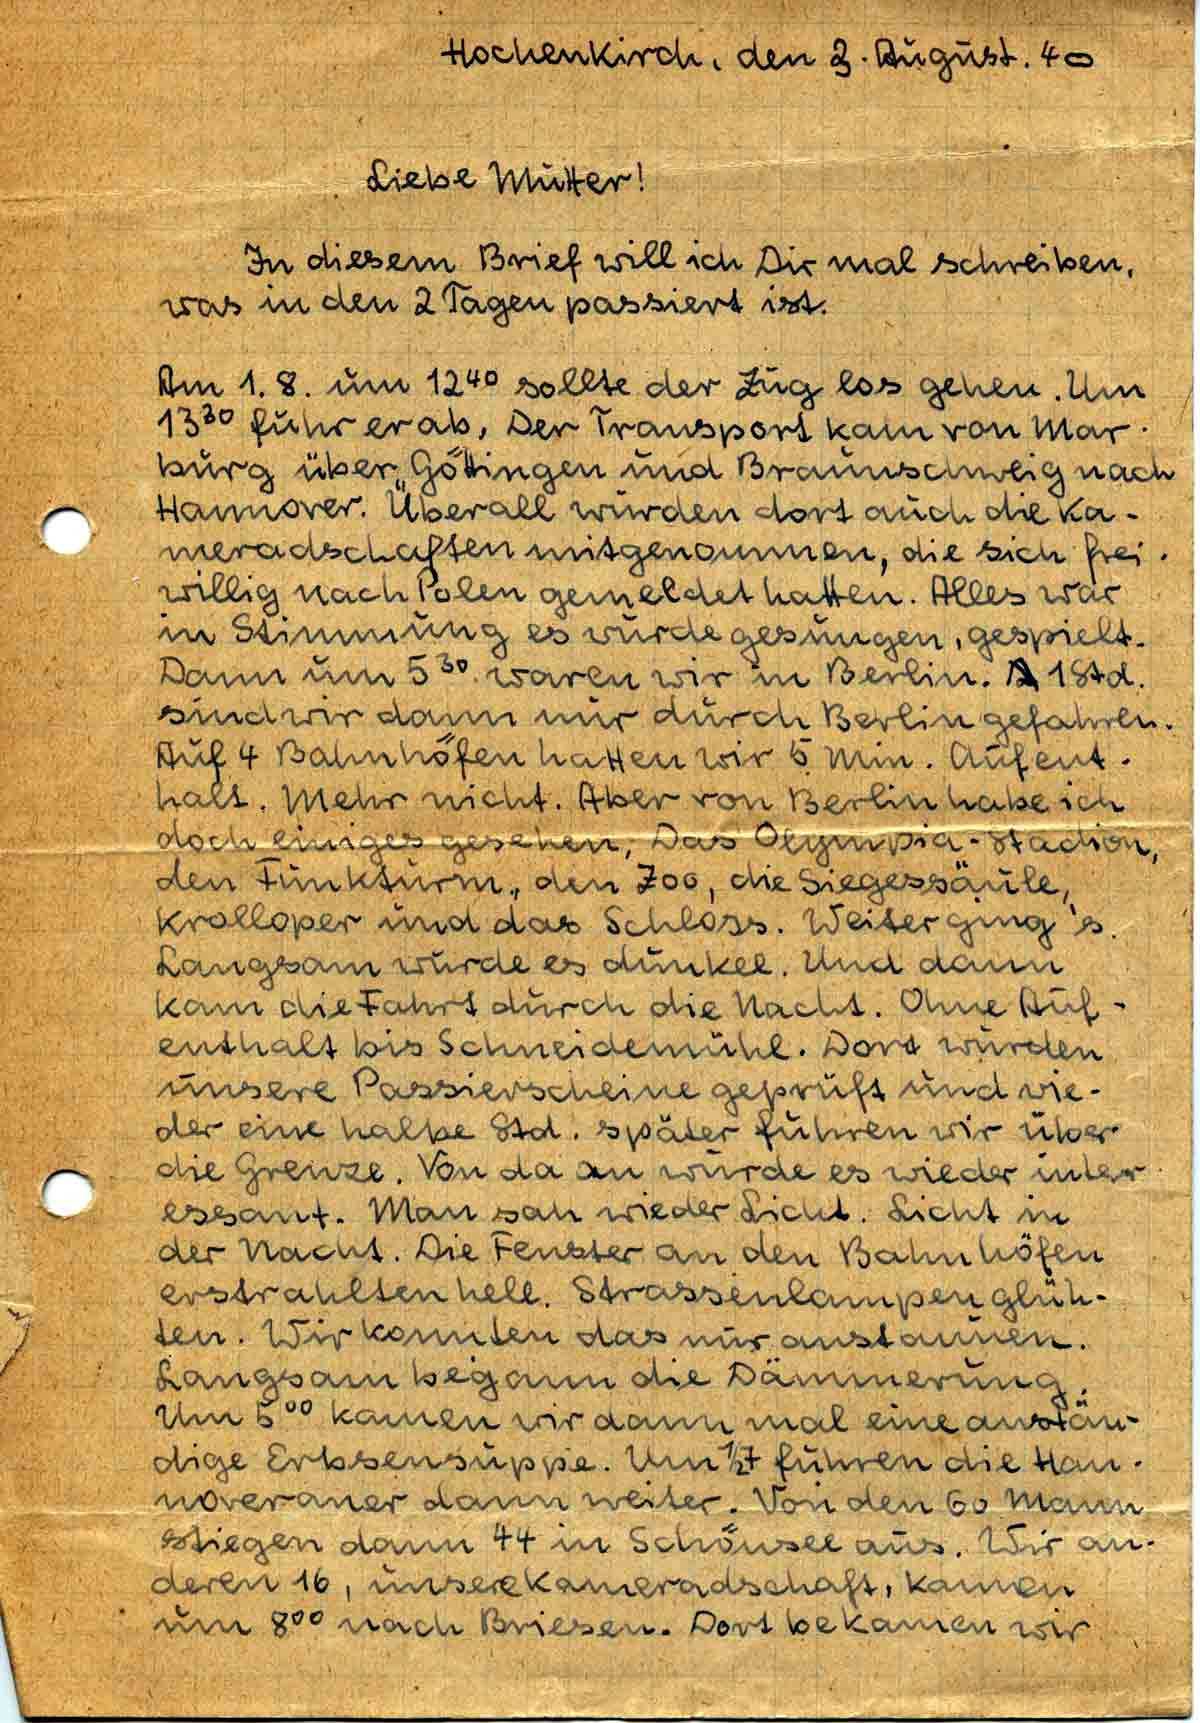 Hochenkirch, den 3. August. 40
Liebe Mutter!
In diesem Brief will ich Dir mal schreiben,
was in den 2 Tagen passiert ist.
Am 1. 8. um 12⁴⁰ sollte der Zug los gehen. Um
13³⁰ fuhr er ab. Der Transport kam von Mar-
burg über Göttingen und Braunschweig nach
Hannover. Überall wurden dort auch die Ka-
meradschaften mitgenommen, die sich frei-
willig nach Polen gemeldet hatten. Alles war
in Stimmung es wurde gesungen, gespielt.
Dann um 5³⁰ waren wir in Berlin. 1 Std.
sind wir dann nur durch Berlin gefahren.
Auf 4 Bahnhöfen hatten wir 5 Min. Aufent-
halt. Mehr nicht. Aber von Berlin habe ich
doch einiges gesehen, Das Olympia-Stadion,
den Funkturm, den Zoo, die Siegessäule,
Krolloper und das Schloss. Weiter ging's.
Langsam wurde es dunkel. Und dann
kam die Fahrt durch die Nacht. Ohne Auf-
enthalt bis Schneidemühl. Dort wurden
unsere Passierscheine geprüft und vie-
der eine halbe Std. später fuhren wir über
die Grenze. Von da an wurde es wieder inter
essant. Man sah wieder Licht. Licht in
der Nacht. Die Fenster an den Bahnhöfen
erstrahlten hell. Strassenlampen glüh-
ten. Wir konnten das nur anstaunen.
Langsam begann die Dämmerung.
Um 5⁰⁰ kamen wir dann mal eine anstän-
dige Erbsensuppe. Um ½7 fuhren die Han-
noveraner dann weiter. Von den 60 Mann
stiegen dann 44 in Schönsee aus. Wir an-
deren 16, unsere Kameradschaft, kamen
um 8⁰⁰ nach Briesen. Dort bekamen wir